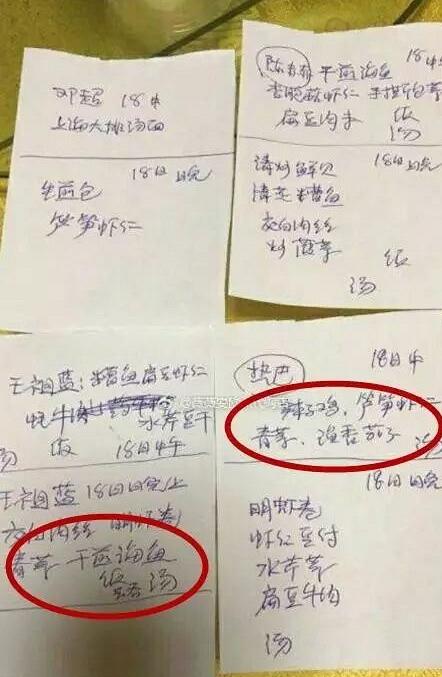 邓超 18中
上海大排汤面
18日晚
生煎包
笋虾仁
18中
干煎海鱼
虾仁
扁豆肉
饭
汤
18日晚
清炒鲜贝
清蒸糟鱼
茭白肉丝
炒
饭
汤
王祖蓝：糟鱼 扁豆虾仁
牛
水芹豆干
饭 18日中午
汤
王祖蓝 18日晚上
茭白肉丝 明虾卷
干煎海鱼
饭 汤
热巴
18日中
辣子鸡、笋虾仁
青菜、鱼香茄子
汤
18日晚
明虾卷
虾仁豆付
水芹
扁豆牛肉
汤